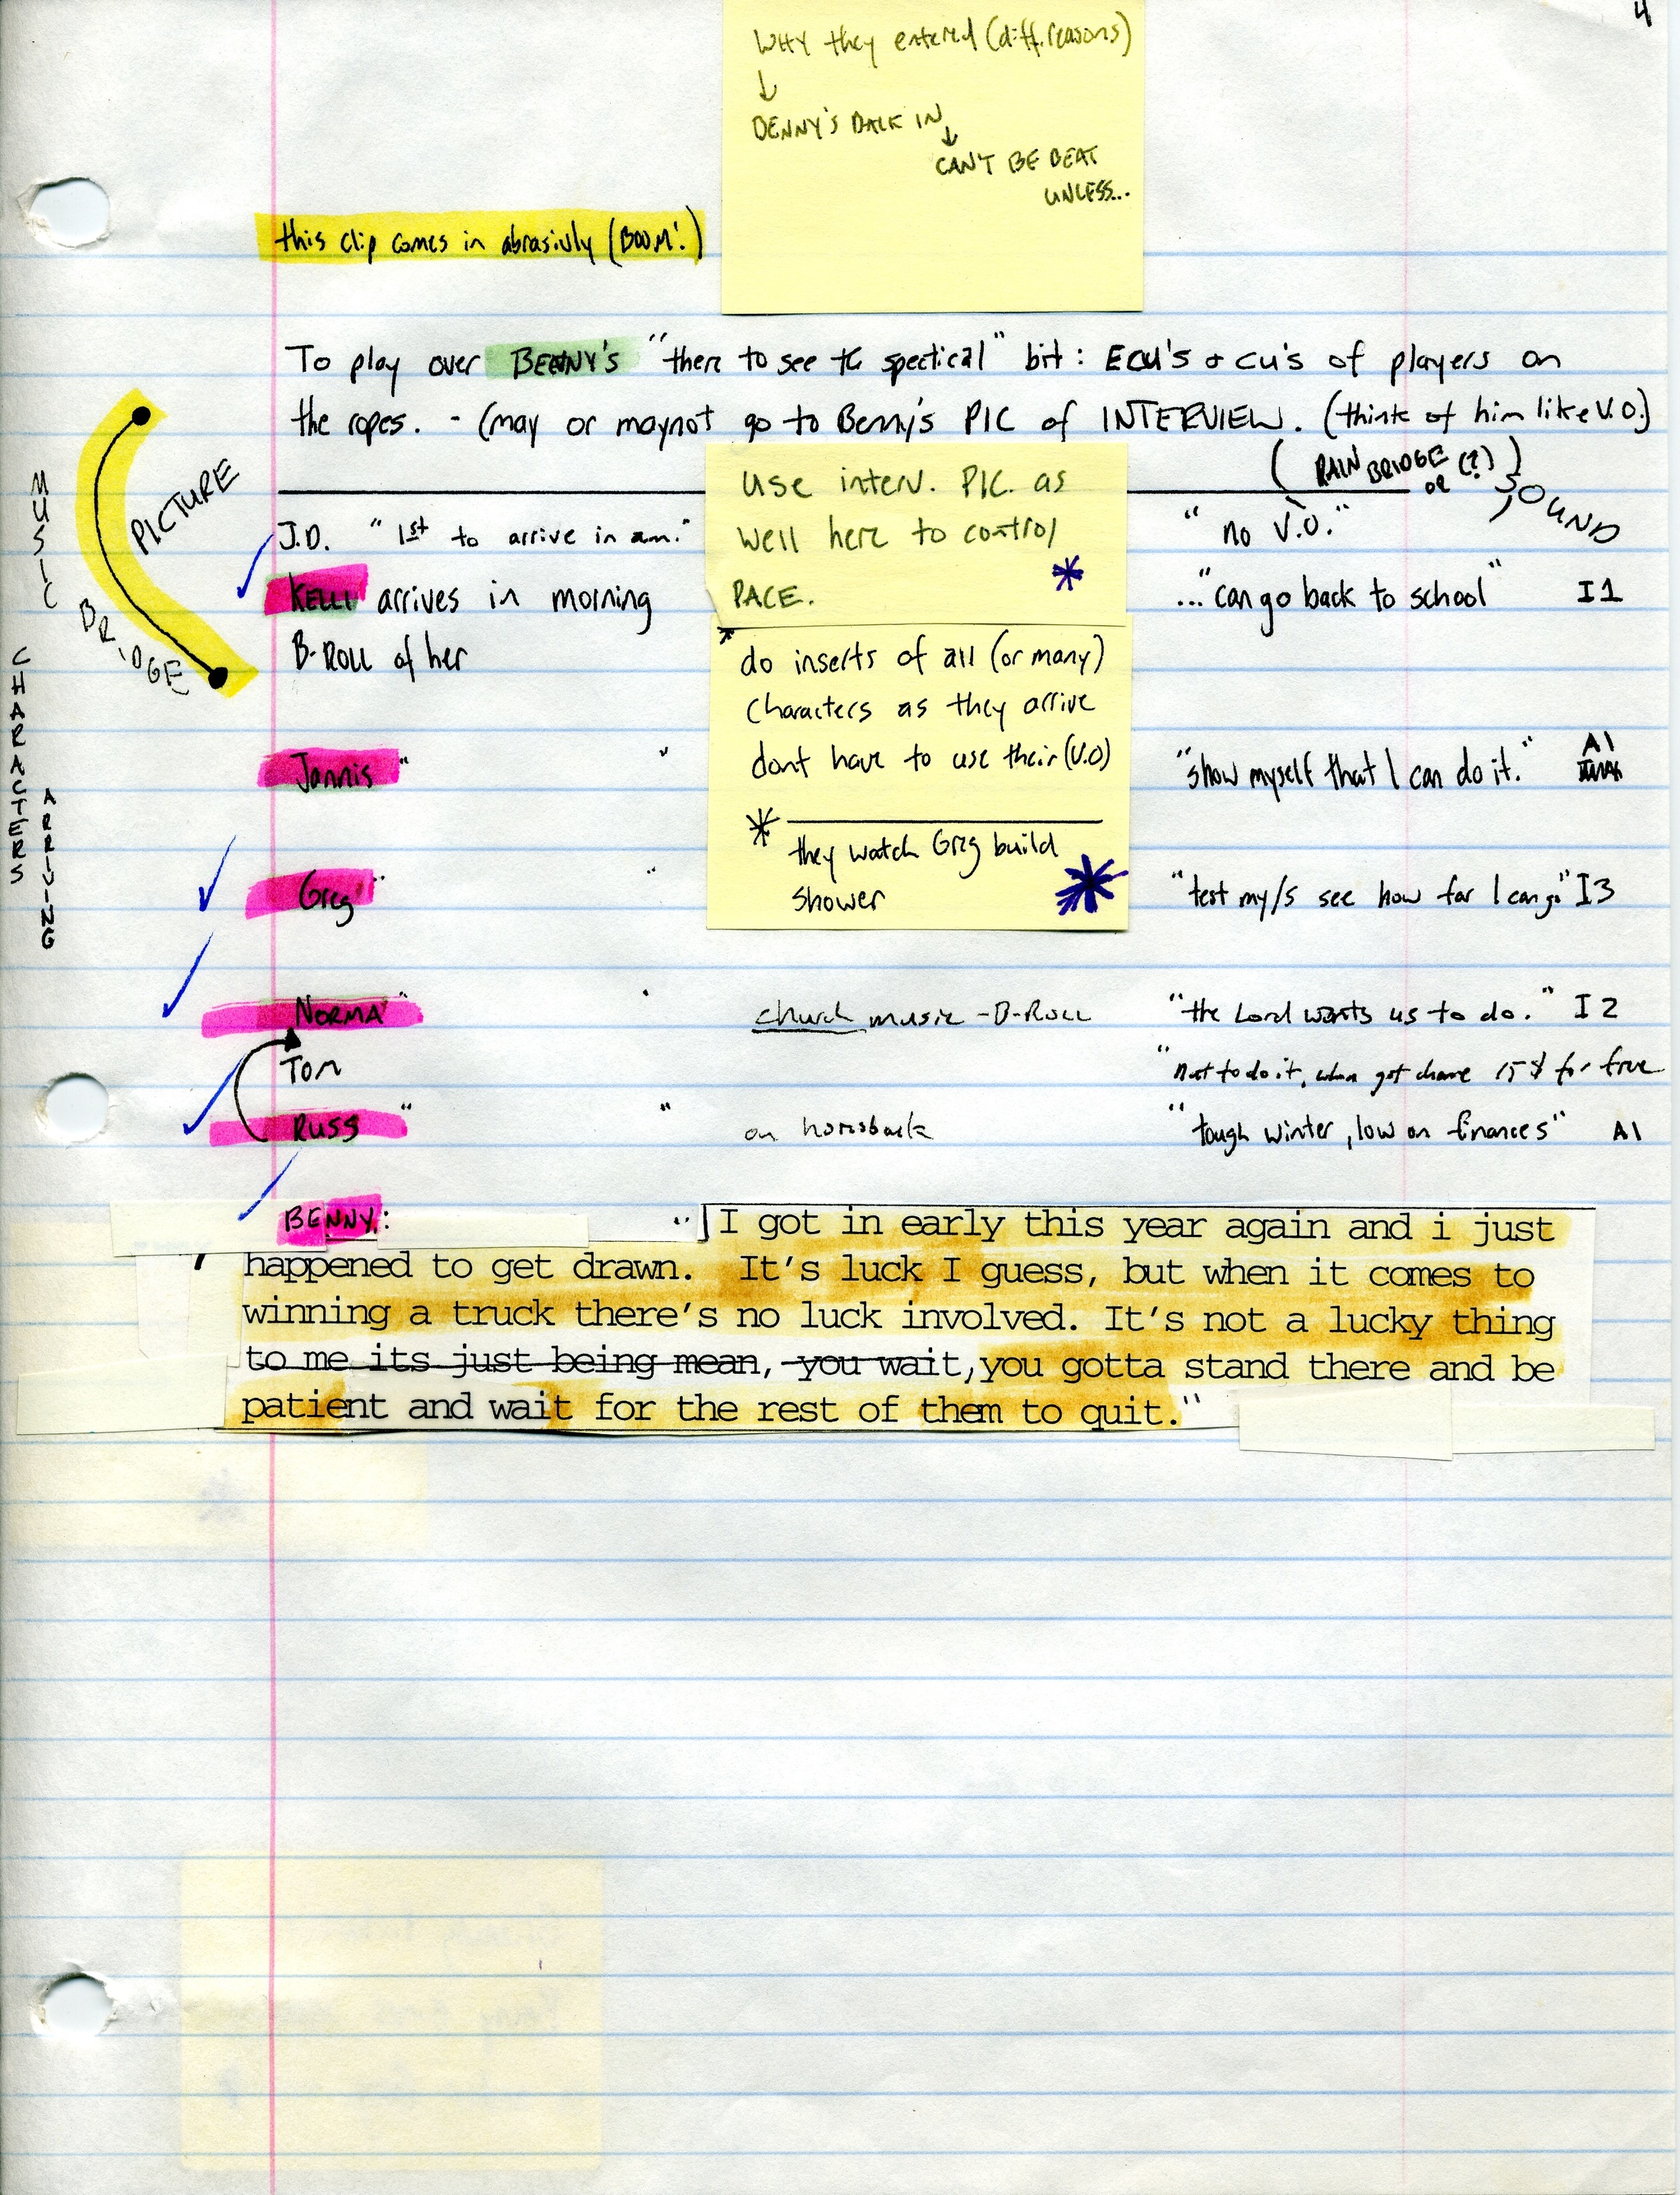 4
WHY they entered (diff. reasons)
↓
BENNY'S BACK IN
↓
CAN'T BE BEAT
UNLESS...
this clip comes in abrasivly (BOOM!)
To play over BENNY'S "there to see the spectical" bit: ECU's + CU's of players on
the ropes. - (may or maynot go to Benny's PIC of INTERVIEW. (think of him like V.O.)
(RAIN BRIDGE (?))
or
SOUND
PICTURE
MUSIC BRIDGE
CHARACTERS ARRIVING
use interv. PIC. as
well here to control
PACE. *
J.D. "1st to arrive in am." "no V.O."
KELLI arrives in morning ..."can go back to school" I1
B-ROLL of her
* do inserts of all (or many)
characters as they arrive
dont have to use their (V.O)
* they watch Greg build
shower
Jannis " " "show myself that I can do it." A1
Greg " " "test my/s see how far I can go" I3
NORMA " " church music - B-ROLL "the Lord wants us to do." I2
Tom "not to do it, when got chance 15 $ for free
RUSS " " on horseback "tough winter, low on finances" A1
BENNY: "I got in early this year again and i just
happened to get drawn. It's luck I guess, but when it comes to
winning a truck there's no luck involved. It's not a lucky thing
to me its just being mean, you wait, you gotta stand there and be
patient and wait for the rest of them to quit."